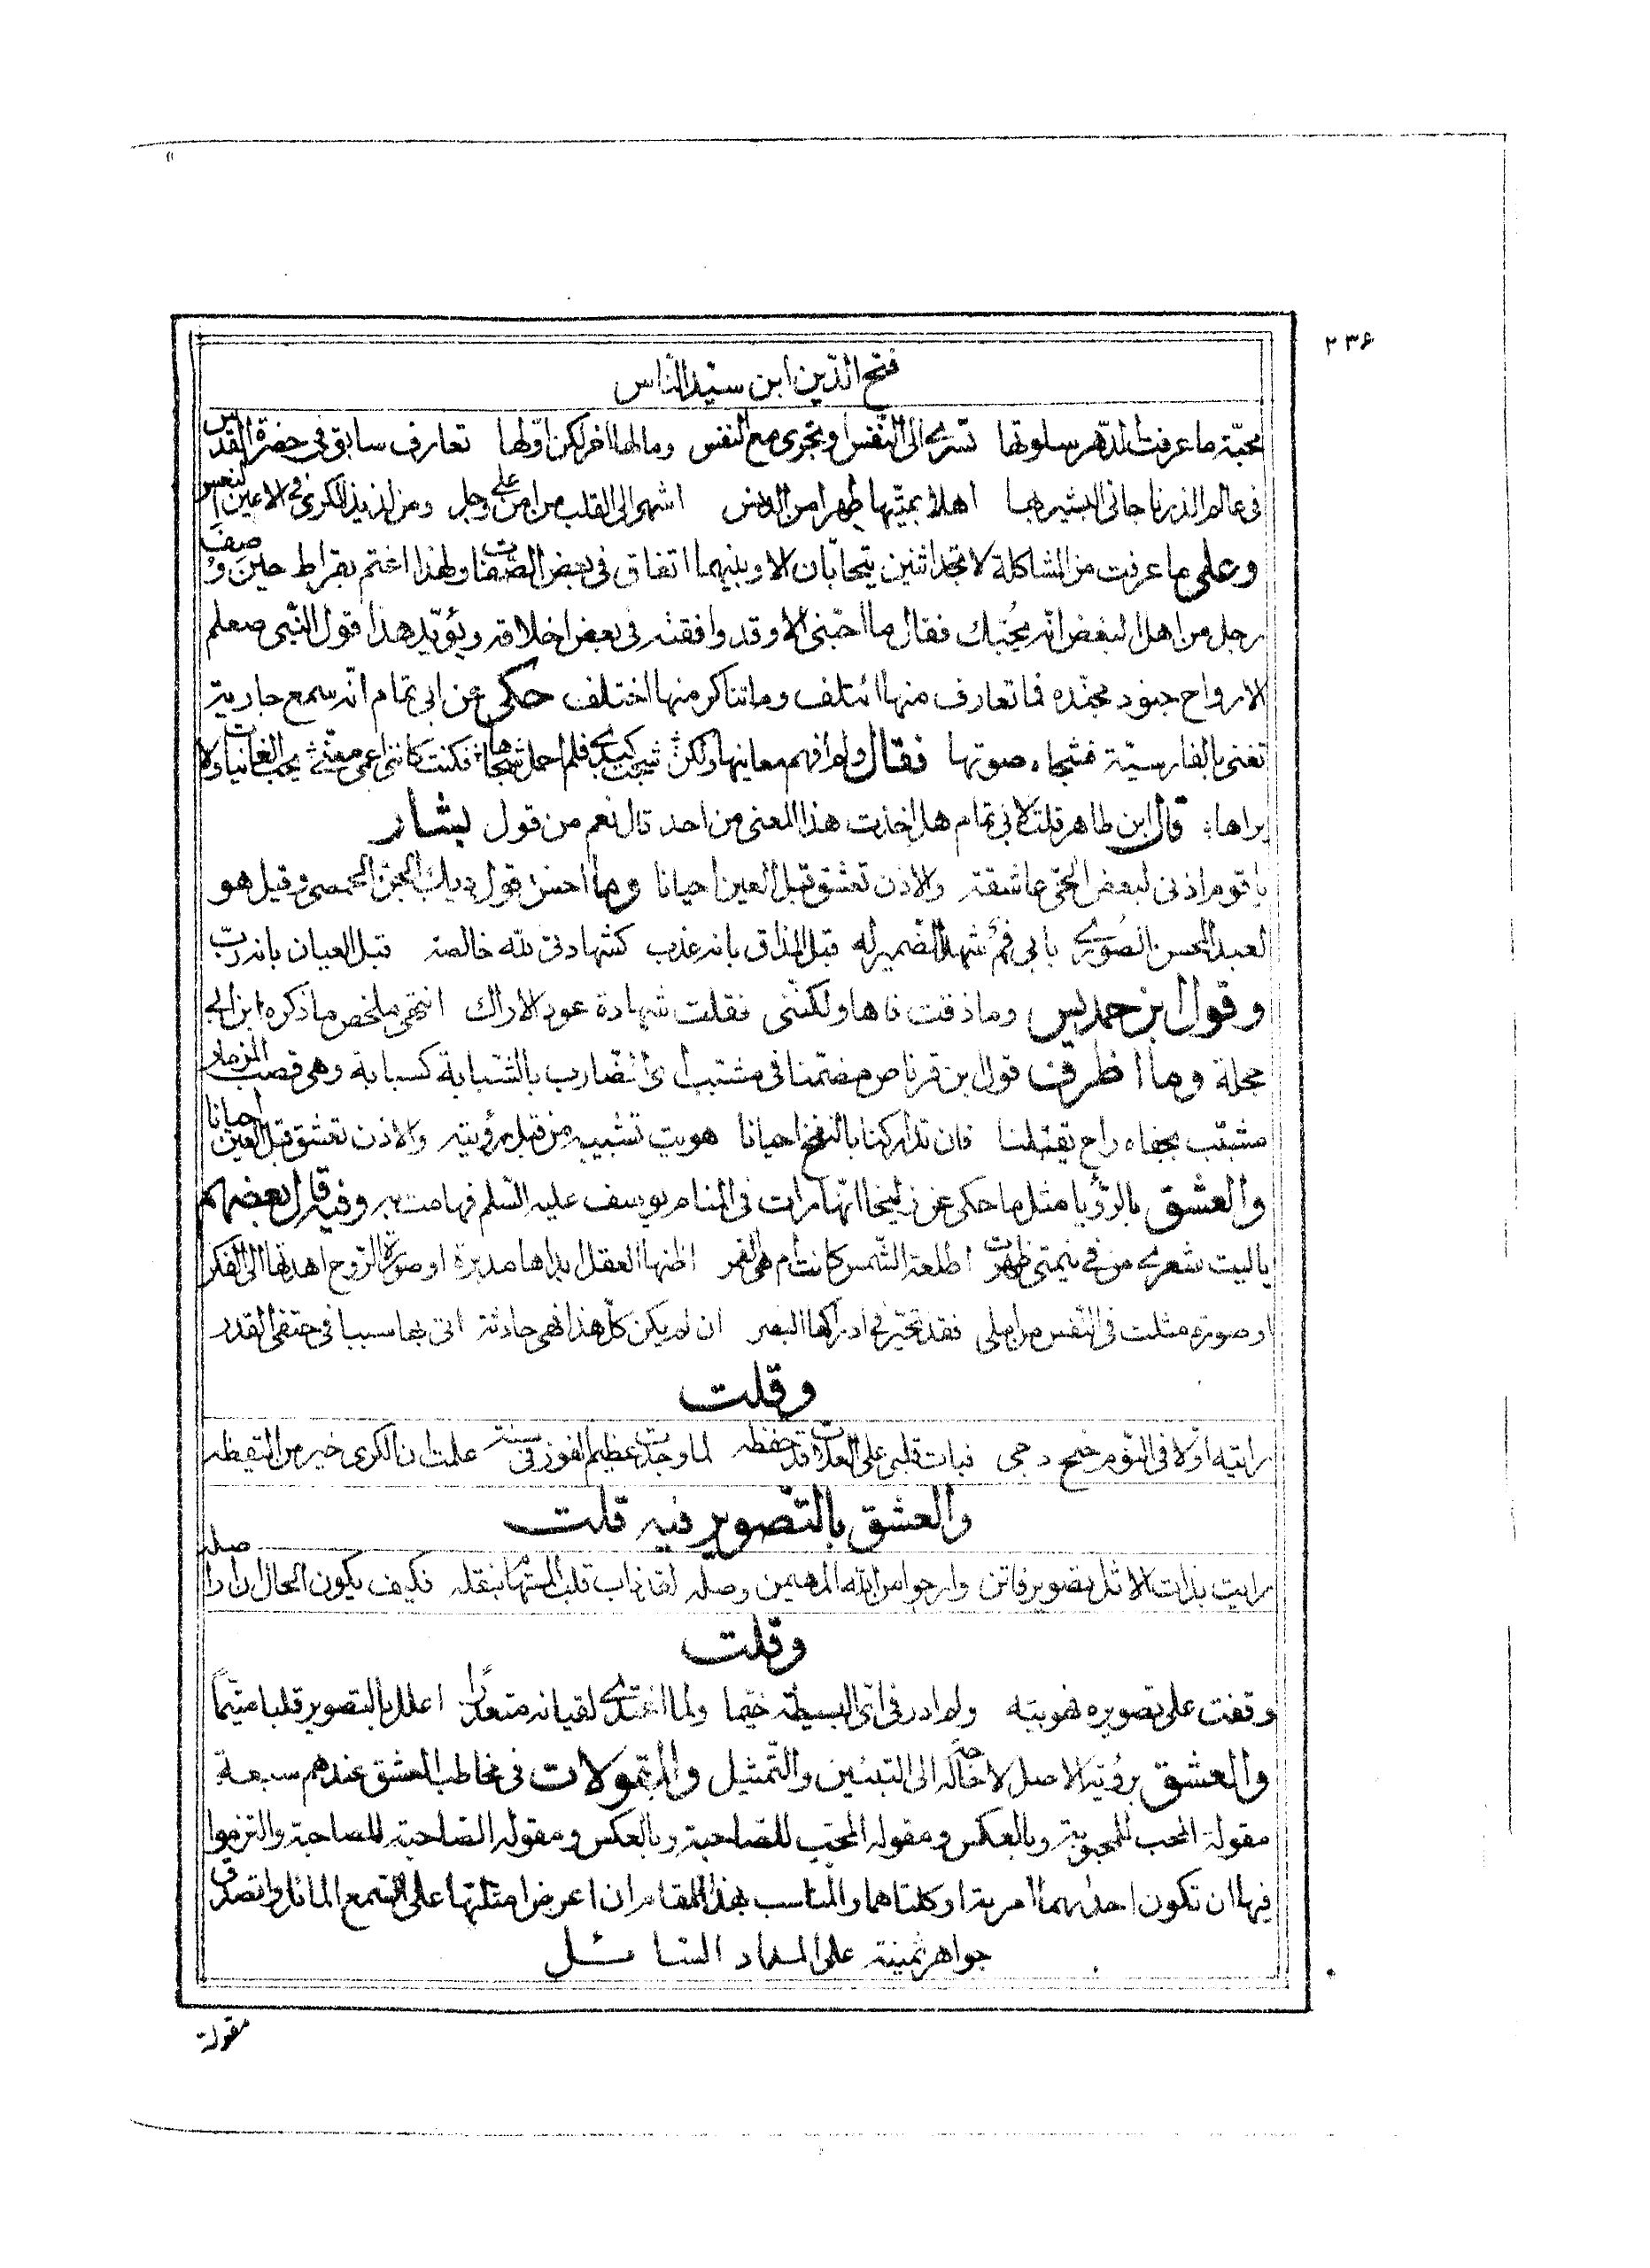 ٢٣۶
فتح الدّين ابن سيّد النّاس
محبّة ما عرفت الدّهر سلوتها تسرى الى النّفس او تجرى مع النفس وما لها اخر لكن اوّلها تعارف سابق فى حضرة القدس
فى عالم الذر ناجانى البشير بها اهلا بميّتها طهرا من الدنس اشهى الى القلب من امن على وجل ومن لذيذ الكرى فى الاعين النعس
وعلى ما عرفت من المشاكلة لا تجد اثنين يتحابّان الا وبينهما اتفاق فى بعض الصّفات ولهذا اغتم بقراط حين وصف
رجل من اهل البغض انّه يحبّك فقال ما احبّنى الا وقد وافقته فى بعض اخلاقه ويؤيّد هذا قول النّبى صعلم
الارواح جنود مجنّده فما تعارف منها ائتلف وما تناكر منها اختلف حكى عن ابى تمام انه سمع جارية
تغنى بالفارسيّة فشجاه صوتها فقال ولم افهم معانيها ولكن شجت كبدى فلم اجهل شجاها فكنت كاننى اعمى معنّى يحب الغانيات ولا
يراها قال ابن طاهر قلت لابى تمام هل اخذت هذا المعنى من احد قال نعم من قول بشار
يا قوم اذنى لبعض الحىّ عاشقة والاذن تعشق قبل العين احيانا وما احسن قول ديك الجنّ الحمصى وقيل هو
لعبد المحسن الصّورى بابى فم شهد الضّمير له قبل المذاق بانه عذب كشهادتى لله خالصة قبل العيان بانه ربّ
وقول ابن حمديس وما ذقت فاها ولكنّنى نقلت شهادة عود الاراك انتهى ملخص ما ذكره ابن ابى
حجلة وما اظرف قول ابن قرناص مضمّنا فى مشبّب اى الضّارب بالشّبابة كسبابة وهى قصب المزمار
مشبّب بجفاه راح يقتلنا فان تداركنا بالنفخ احيانا هويت تشبيبه من قبل رؤيته والاذن تعشق قبل العين احيانا
والعشق بالرّؤيا مثل ما حكى عن زليخا انّها رات فى المنام يوسف عليه السّلم فهامت به وفيه قال بعضهم
يا ليت شعرى من فى نيمتى ظهرت اطلعة الشّمس كانت ام هى القمر اظنها العقل ابداها مدبرة او صورة الرّوح اهدتها الى الفكر
او صورة مثلت فى النّفس من املى فقد تحيّر فى ادراكها البصر ان لم يكن كلّ هذا فهى حادثة اتى بها سببا فى حتفى القدر
وقلت
رايته اوّلا فى النّوم جنح دجى فبات قلبى على العلات قد حفظه لما وجدت عظيم الفوز فى سنة علمت ان الكرى خير من اليقظه
والعشق بالتّصوير فيه قلت
رايت بذات الاثل تصوير فاتن وارجو من الله المهيمن وصله لقد ذاب قلب المستهام بنقله فكيف يكون الحال ان ار اصله
وقلت
وقفت على تصويره فهويته ولم ادر فى اىّ البسيطة خيّما ولما اغتدى لقيانه متعذّرا اعلل بالتصوير قلبا متيّما
والعشق برؤية الاصل لا حاجة له الى التبيين والتّمثيل والمقولات فى مخاطب العشق عندهم سبعة
مقولة المحب للمحبوبة وبالعكس ومقولة المحبّ للصّاحبة وبالعكس ومقولة الصّاحبة للصاحبة والتزموا
فيها ان تكون احدٰيهما امرءة او كلتاهما والمناسب بهذا المقام ان اعرض امثلتها على السّمع المائل واتصدّق
جواهر ثمينة على السائل
مقولة